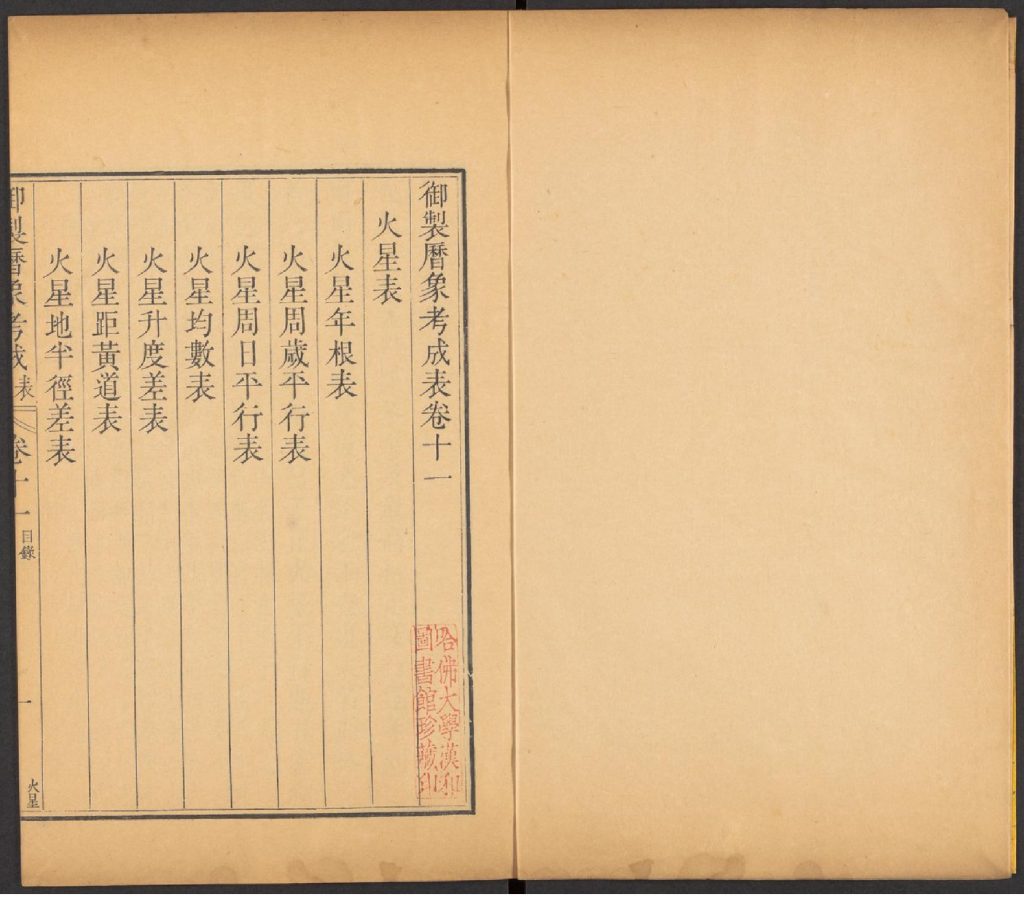 御製曆象考成表卷十一
火星表
火星年根表
火星周歲平行表
火星周日平行表
火星均數表
火星升度差表
火星距黃道表
火星地半徑差表
御製曆象考成表
卷十一
目錄
一
火星
哈佛大學漢和
圖書館珍藏印